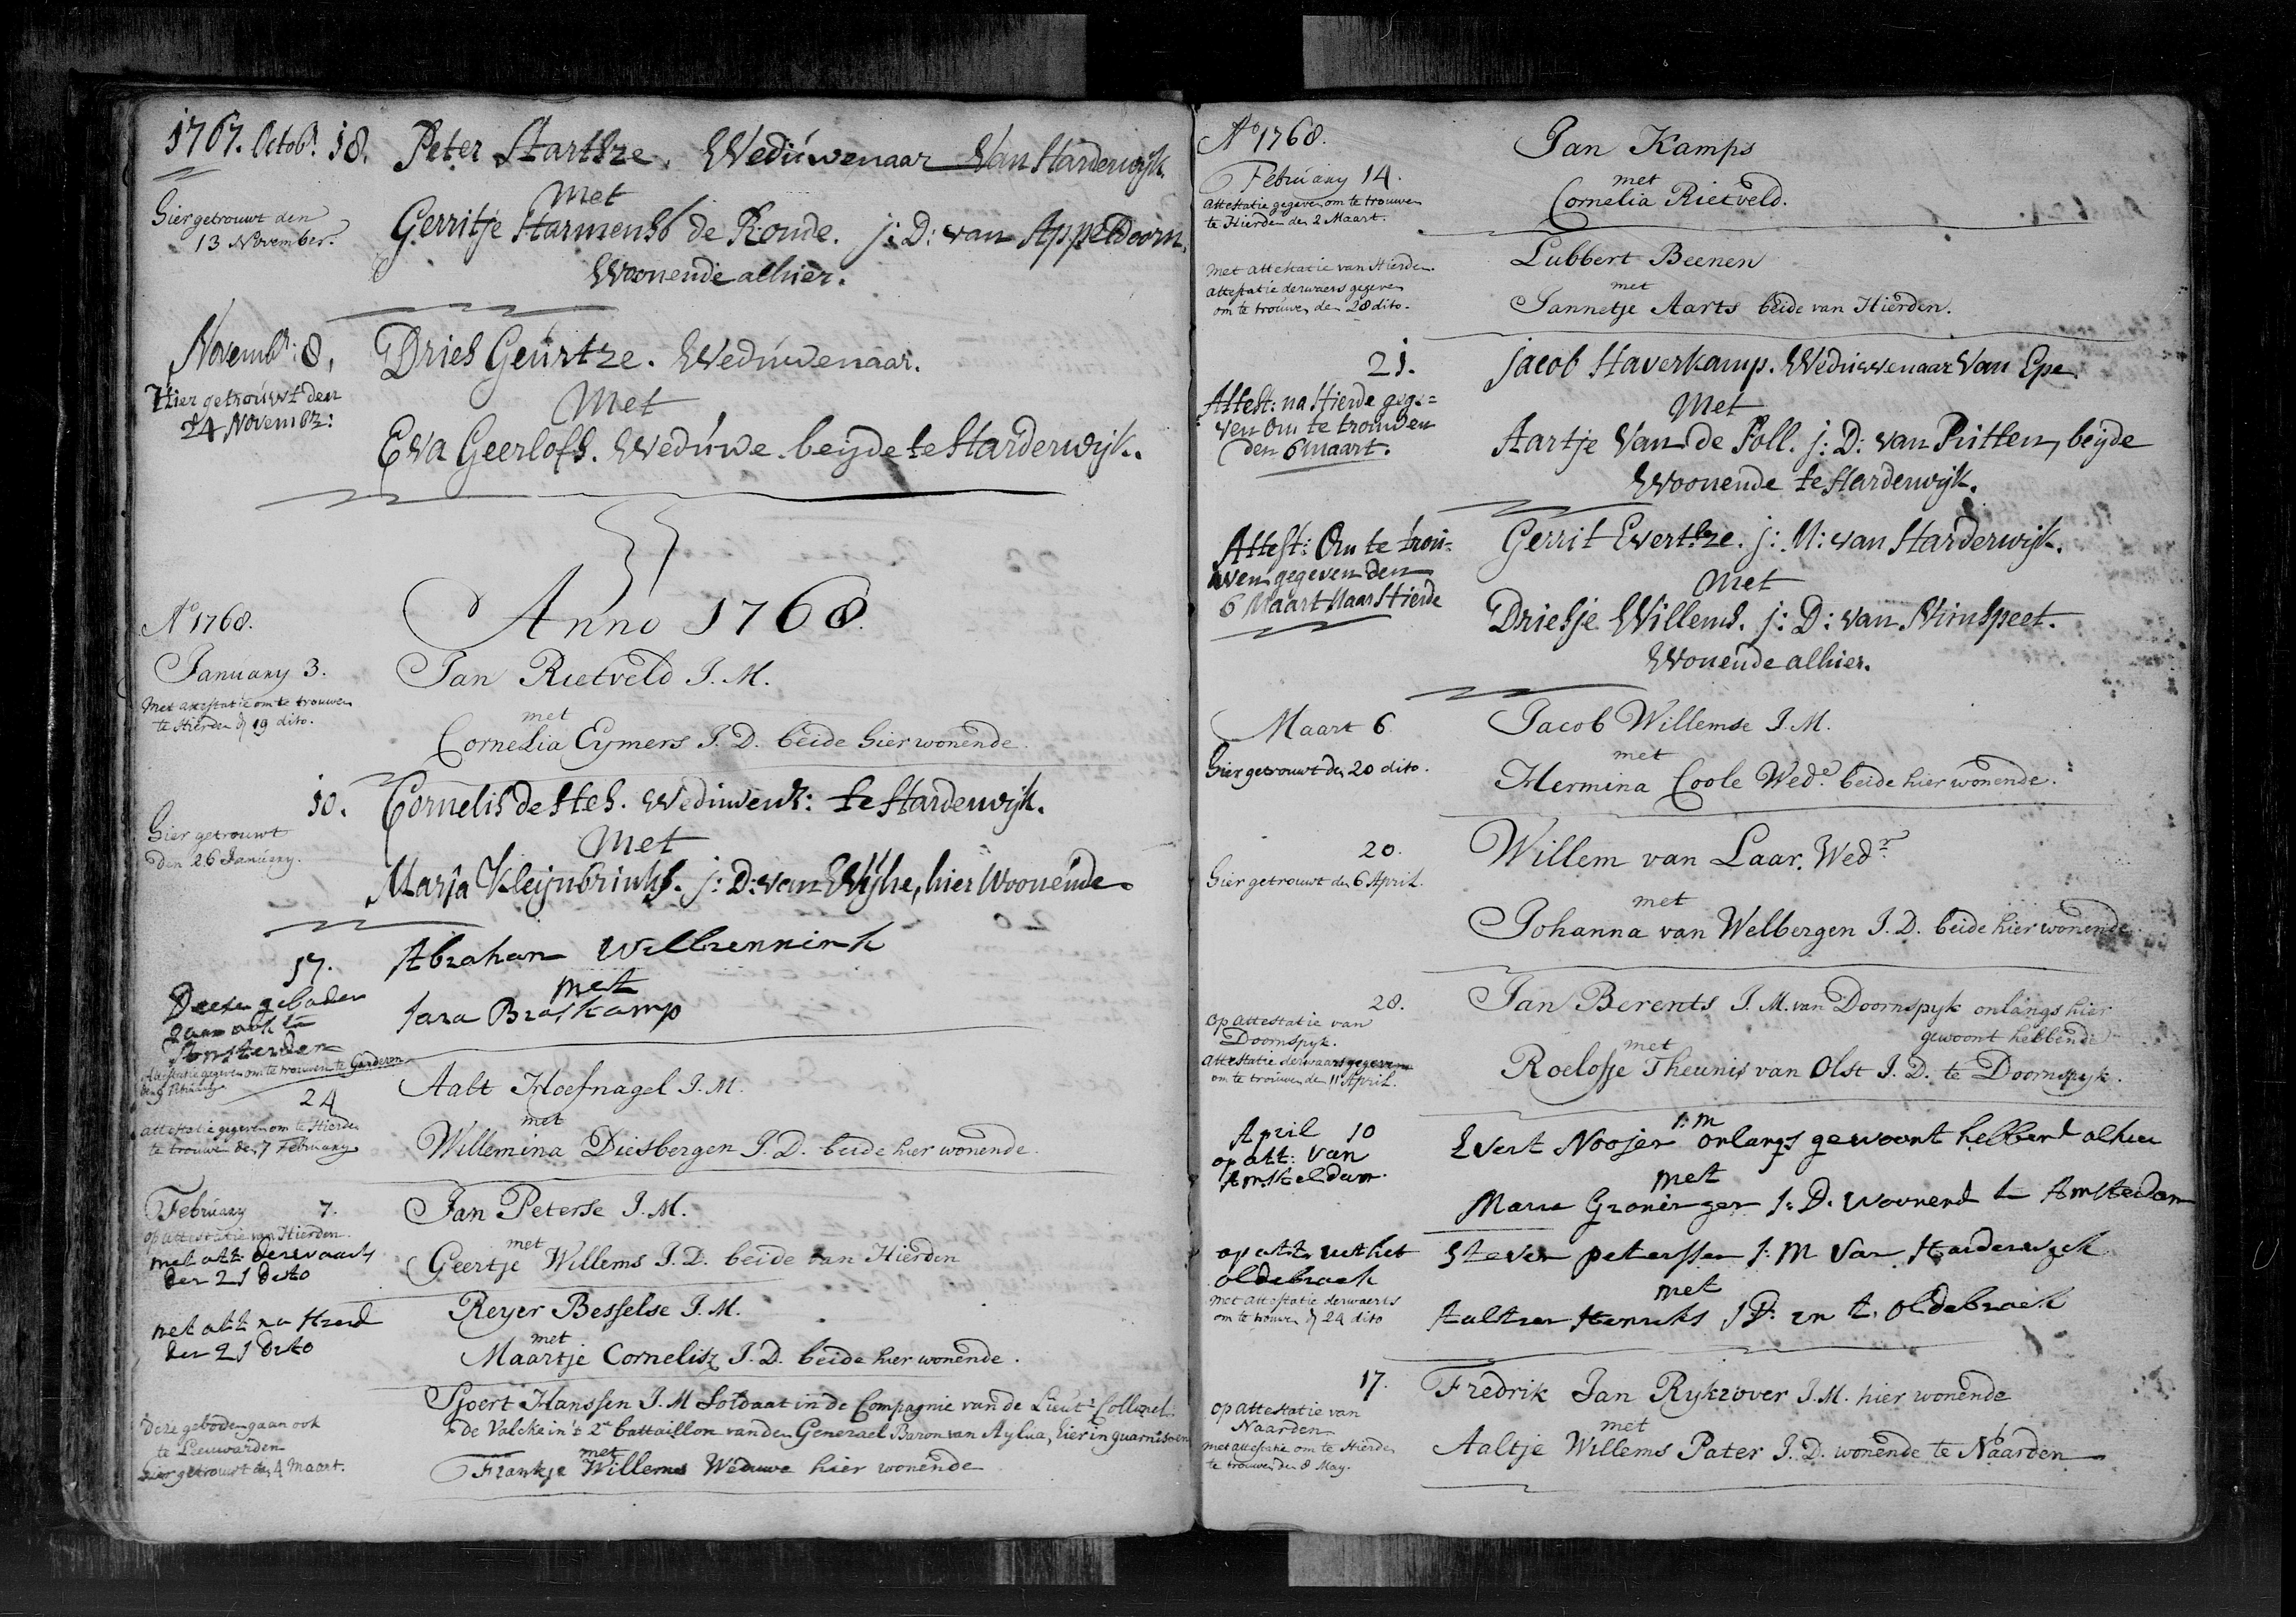 1767. Octobr. 18. Peter Hartsze. Weduwenaar Van Harderwijk
Met
Hier getrouwt den
13 November.
Gerritje Harmenss de Ronde. j: D: van Appeldoorn.
Woonende alhier.
Novembr: 8, Dries Geurtze. Weduwenaar.
Hier getrouwt den
24 Novembr:
Met
Eva Geerlofs. Weduwe beijde te Harderwijk.
Anno 1768
Ao 1768.
January 3. Jan Rietveld J. M.
Met attestatie om te trouwen
te Hierden d 19 dito.
met
Cornelia Eymers J. D. beide hier wonende.
10. Cornelis de Hes. Weduwenr: te Harderwijk.
Hier getrouwt
den 26 January.
Met
Marja Kleijnbrinks. j: D: van Wijhe, hier Woonende
17. Abraham Wilbrennink
met
Deese geboden
gaan ook te
Amsterdam
Sara Braskamp
Attestatie gegeven om te trouwen te Garderen
24 Aalt Hoefnagel J. M.
attestatie gegeven om te Hierden
te trouwen den 7 February
met
Willemina Diesbergen J. D. beide hier wonende.
February 7. Jan Peterse J. M.
op attestatie van Hierden
met att: derwaarts
den 21 dito
met
Geertje Willems J. D. beide van Hierden
Reyer Besselse J. M.
met att na Hierd
den 21 dito
met
Maartje Cornelisz J. D. beide hier wonende.
Sjoert Hanssen J. M Soldaat in de Compagnie van de Lieut: Collonel
de Valcke in 't 2e battaillon van den Generael Baron van Aylua, hier in guarnisoen
Deze geboden gaan ook
te Leeuwarden
hier getrouwt den 4 Maart.
met
Frankje Willems Weduwe hier wonende
Ao 1768.
February 14. Jan Kamps
attestatie gegeven om te trouwen
te Hierden den 2 Maart.
met
Cornelia Rietveld.
Lubbert Beenen
met attestatie van Hierden.
attestatie derwaers gegeven
om te trouwen den 28 dito.
met
Jannetje Aarts beide van Hierden.
21. Jacob Haverkamp. Weduwenaar Van Epe
Attest: na Hierde gege=
ven om te trouwen
den 6 maart.
Met
Aartje Van de Poll. j: D: van Putten, beijde
Woonende te Harderwijk.
Attest: Om te trou=
wen gegeven den
6 Maart Naar Hierde
Gerrit Evertsze. j: M: van Harderwijk.
Met
Driesje Willems. j: D: van Nunspeet.
Wonende alhier.
Maart 6 Jacob Willemse J. M.
Hier getrouwt den 20 dito.
met
Hermina Coole Wede. beide hier wonende.
20. Willem van Laar. Wedr.
Hier getrouwt den 6 April.
met
Johanna van Welbergen J. D. beide hier wonende.
28. Jan Berents J. M. van Doornspyk onlangs hier
gewoont hebbende
op attestatie van
Doornspyk.
attestatie derwaars gegeven
om te trouwen den 11 April.
met
Roelofje Theunis van Olst J. D. te Doornspyk.
April 10
op att: van
Amsteldam.
Evert Noojen J: M onlangs gewoont hebbend alhier
met
Maria Groninger J: D. woonend te Amsterdam
op att. uit het
oldebroek
met attestatie derwaerts
om te trouwen d 24 dito
Steven peterssen J: M van Harderwyck
met
Henriks J D: in t. oldebroek
17. Fredrik Jan Rykzover J. M. hier wonende
op attestatie van
Naarden
met attestatie om te Hierden
te trouwen den 8 May.
met
Aaltje Willems Pater J. D. wonende te Naarden